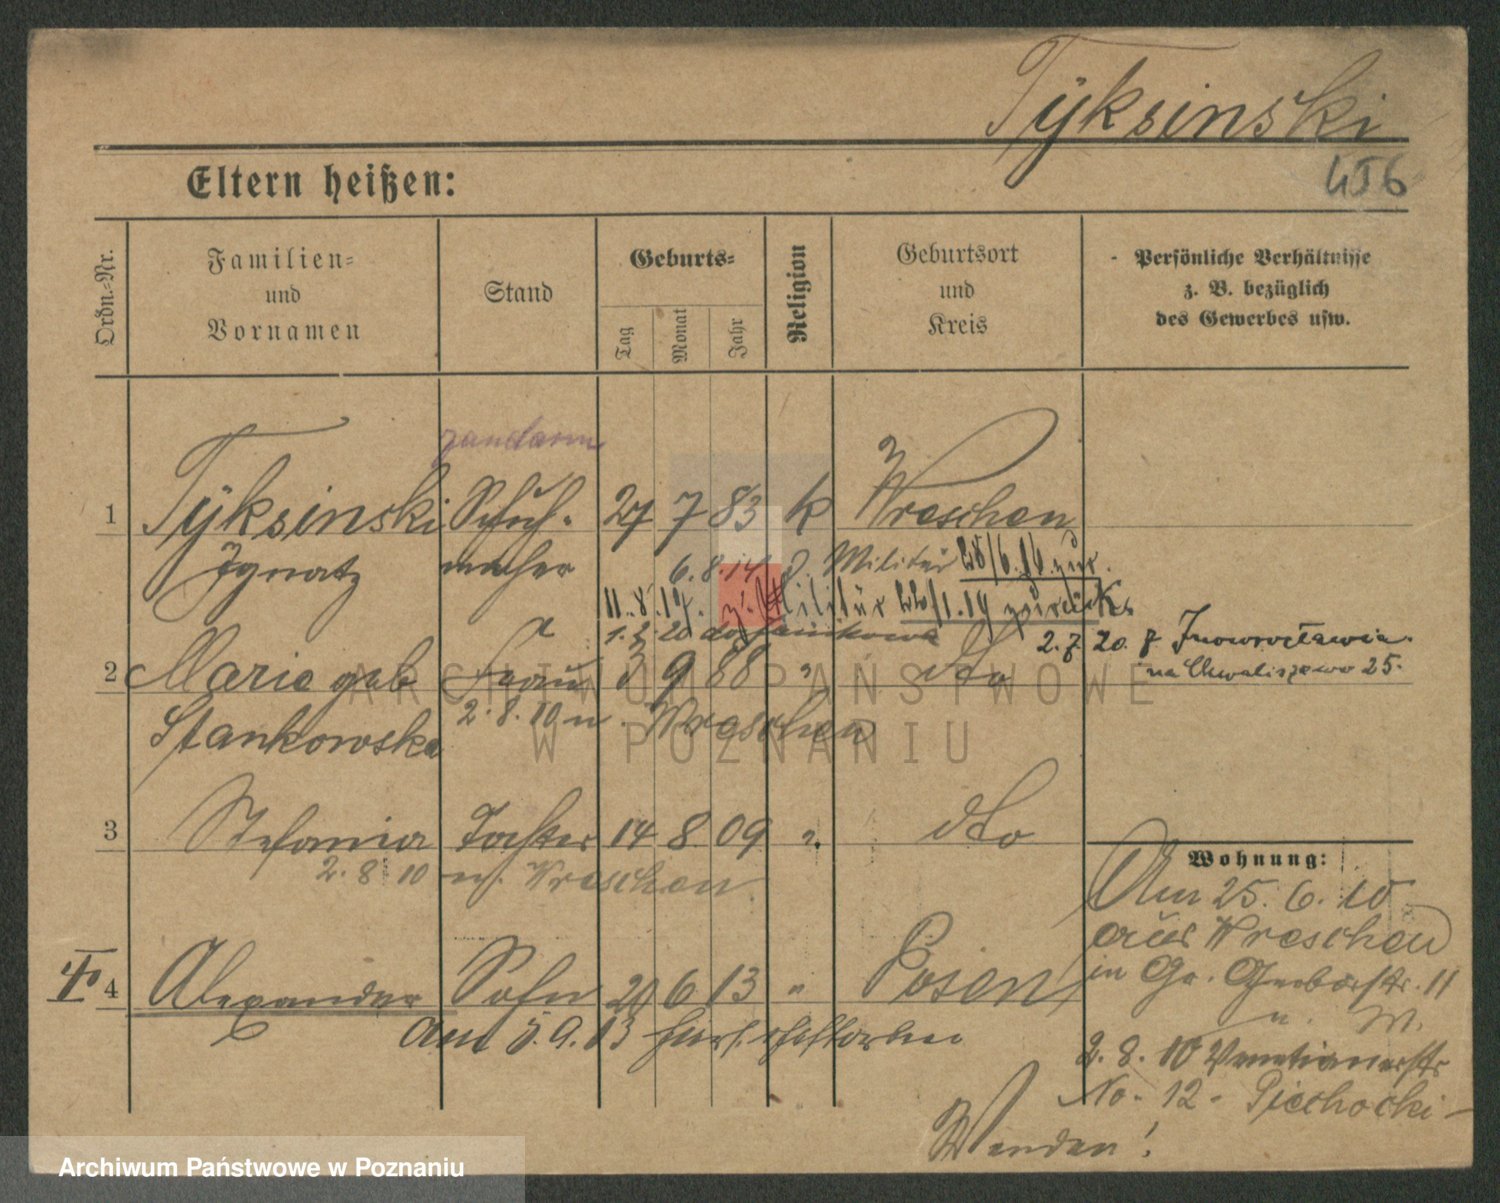 Tÿksinski
456
Eltern heißen:
Ordn.-Nr.
Familien- und Vornamen
Stand
Geburts-
Tag
Monat
Jahr
Religion
Geburtsort und Kreis
Persönliche Verhältnisse z. B. bezüglich des Gewerbes usw.
żandarm
1 Tÿksinski Schuh- 27 7 83 k Wreschen
Ignatz macher 6.8.14 z. Militär 28/6.16 zur.
11.8.17. z. Militär 22/1.19 zurück.
1.2.20 do Jankowa
2.7.20. z Inowrocławia
na Chwaliszewo 25.
2 Marie geb. Frau 3 9 88 " dto
Stankowska 2.8.10 n. Wreschen
3 Stefania Tochter 14 8 09 " dto
2.8.10 n. Wreschen
4 Alexander Sohn 20 6 13 " Posen
Am 5.9.13 hier verstorben
Wohnung:
Am 25.6.10
aus Wreschen
in Gr. Gerberstr. 11
n. W.
2.8.10 Venetianerstr
No. 12 - Piechocki -
Wenden!
ARCHIWUM PAŃSTWOWE
W POZNANIU
Archiwum Państwowe w Poznaniu